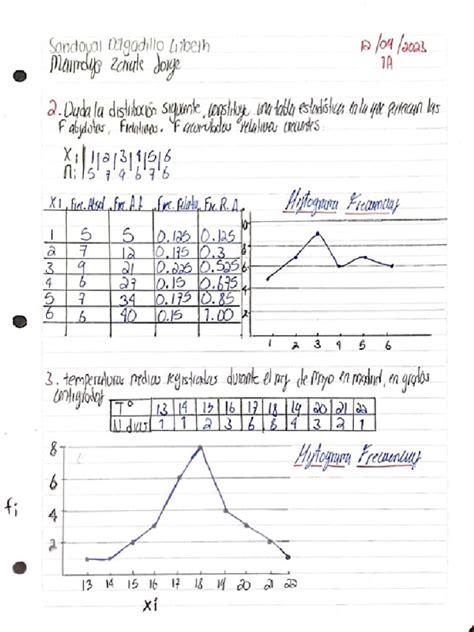 Sandoval Delgadillo Lizbeth 12/09/2023
Zarate Jorge 1A
2. Dada la distribución siguiente, constituye una tabla estadística en la que aparezcan las
F absolutas, F relativas, F acumuladas relativas crecientes.
Xi |1|2|3|4|5|6
ni |5|7|9|6|7|6
Xi Frec. Absol Frec. A.A Frec. Relativ Frec. R.A. Hystograma Frecuencias
1 5 5 0.125 0.125
2 7 12 0.175 0.3
3 9 21 0.225 0.525
4 6 27 0.15 0.675
5 7 34 0.175 0.85
6 6 40 0.15 1.00
10
8
6
4
2
1 2 3 4 5 6
3. temperaturas medias registradas durante el mes de Mayo en madrid, en grados
centigrados
T° 13 14 15 16 17 18 19 20 21 22
N dias 1 1 2 3 6 8 4 3 2 1
Hystograma Frecuencias
8
6
fi 4
2
13 14 15 16 17 18 19 20 21 22
xi